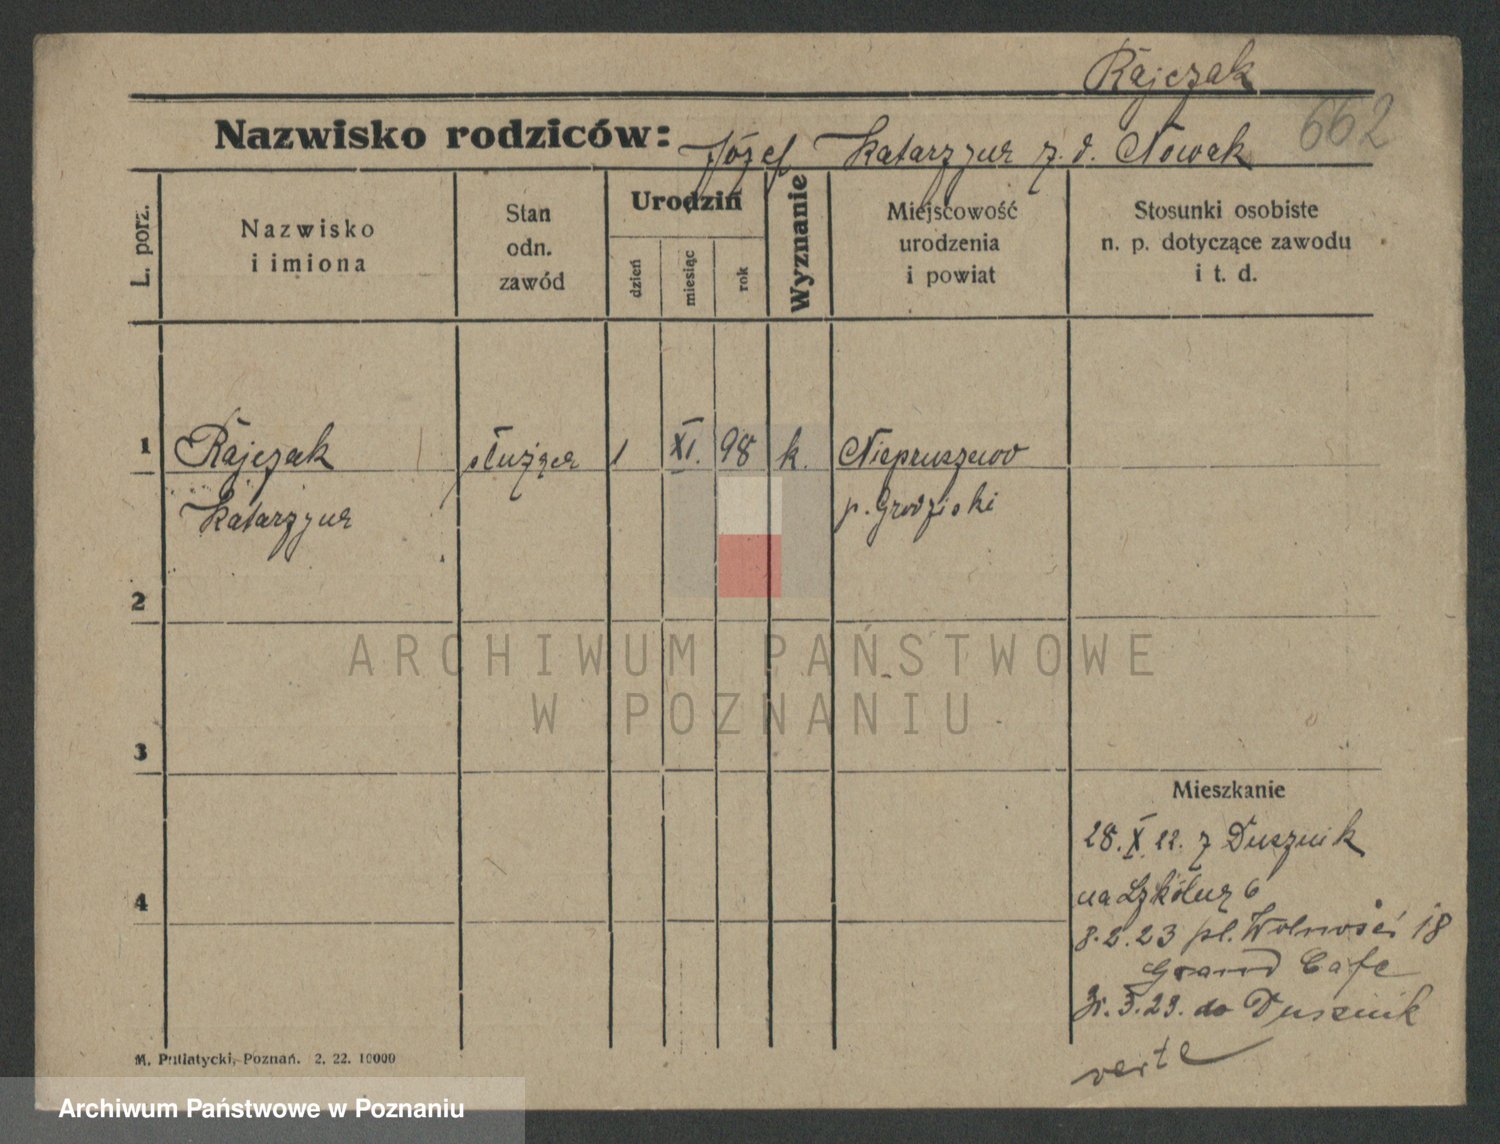 Rajczak
662
Nazwisko rodziców: Józef Katarzyna z. d. Nowak
L. porz.
Nazwisko
i imiona
Stan
odn.
zawód
Urodzin
dzień
miesiąc
rok
Wyznanie
Miejscowość
urodzenia
i powiat
Stosunki osobiste
n. p. dotyczące zawodu
i t. d.
1
Rajczak
Katarzyna
służąca
1
XI.
98
k.
Niepruszewo
p. Grodziski
2
ARCHIWUM PAŃSTWOWE
W POZNANIU
3
4
Mieszkanie
28. X. 22. z Dusznik
na Szkólną 6
8.2.23 pl. Wolności 18
Grand Cafe
3.23. do Dusznik
verte
M. Putiatycki, Poznań. 2. 22. 10000
Archiwum Państwowe w Poznaniu